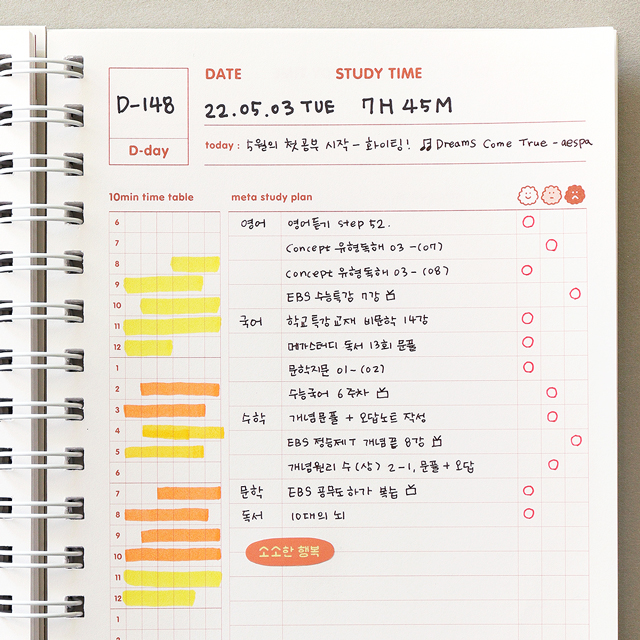 DATE STUDY TIME
D-148
22.05.03 TUE 7H 45M
D-day
today : 5월의 첫 공부 시작 - 화이팅! ♬ Dreams Come True - aespa
10min time table meta study plan
6 영어 영어듣기 step 52.
7 Concept 유형독해 03 - (07)
8 Concept 유형독해 03 - (08)
9 EBS 수능특강 7강
10 국어 학교특강교재 비문학 14강
11 메가스터디 독서 13회 문풀
12 문학지문 01 - (02)
1 수능국어 6주차
2 수학 개념문풀 + 오답노트 작성
3 EBS 정승제T 개념끝 8강
4 개념원리 수(상) 2-1, 문풀 + 오답
5 문학 EBS 공무도하가 복습
6 독서 10대의 뇌
7 소소한 행복
8
9
10
11
12
1
2